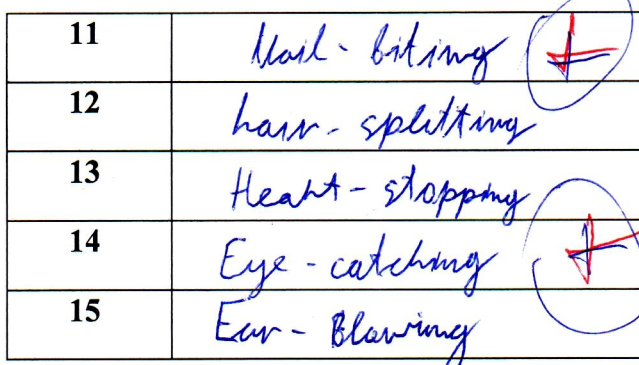 11 Nail - biting
12 hair - splitting
13 Heart - stopping
14 Eye - catching
15 Ear - Blowing